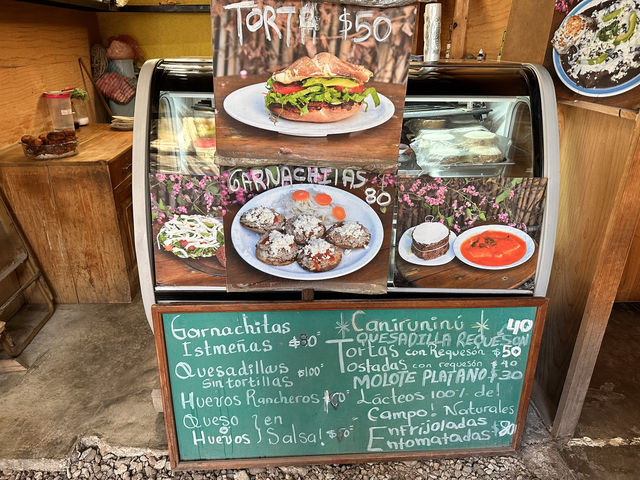 TORTA $50
GARNACHITAS
80
Garnachitas
Istmeñas $80
Quesadillas $100
Sin tortillas
Huevos Rancheros
Queso } en
Huevos } Salsa!
*Caniruninú* 40
QUESADILLA REQUESON
Tortas con Requesón $50
Tostadas con requesón $40
MOLOTE PLATANO $30
Lácteos 100% de!
Campo! Naturales
Enfrijoladas
Entomatadas $80